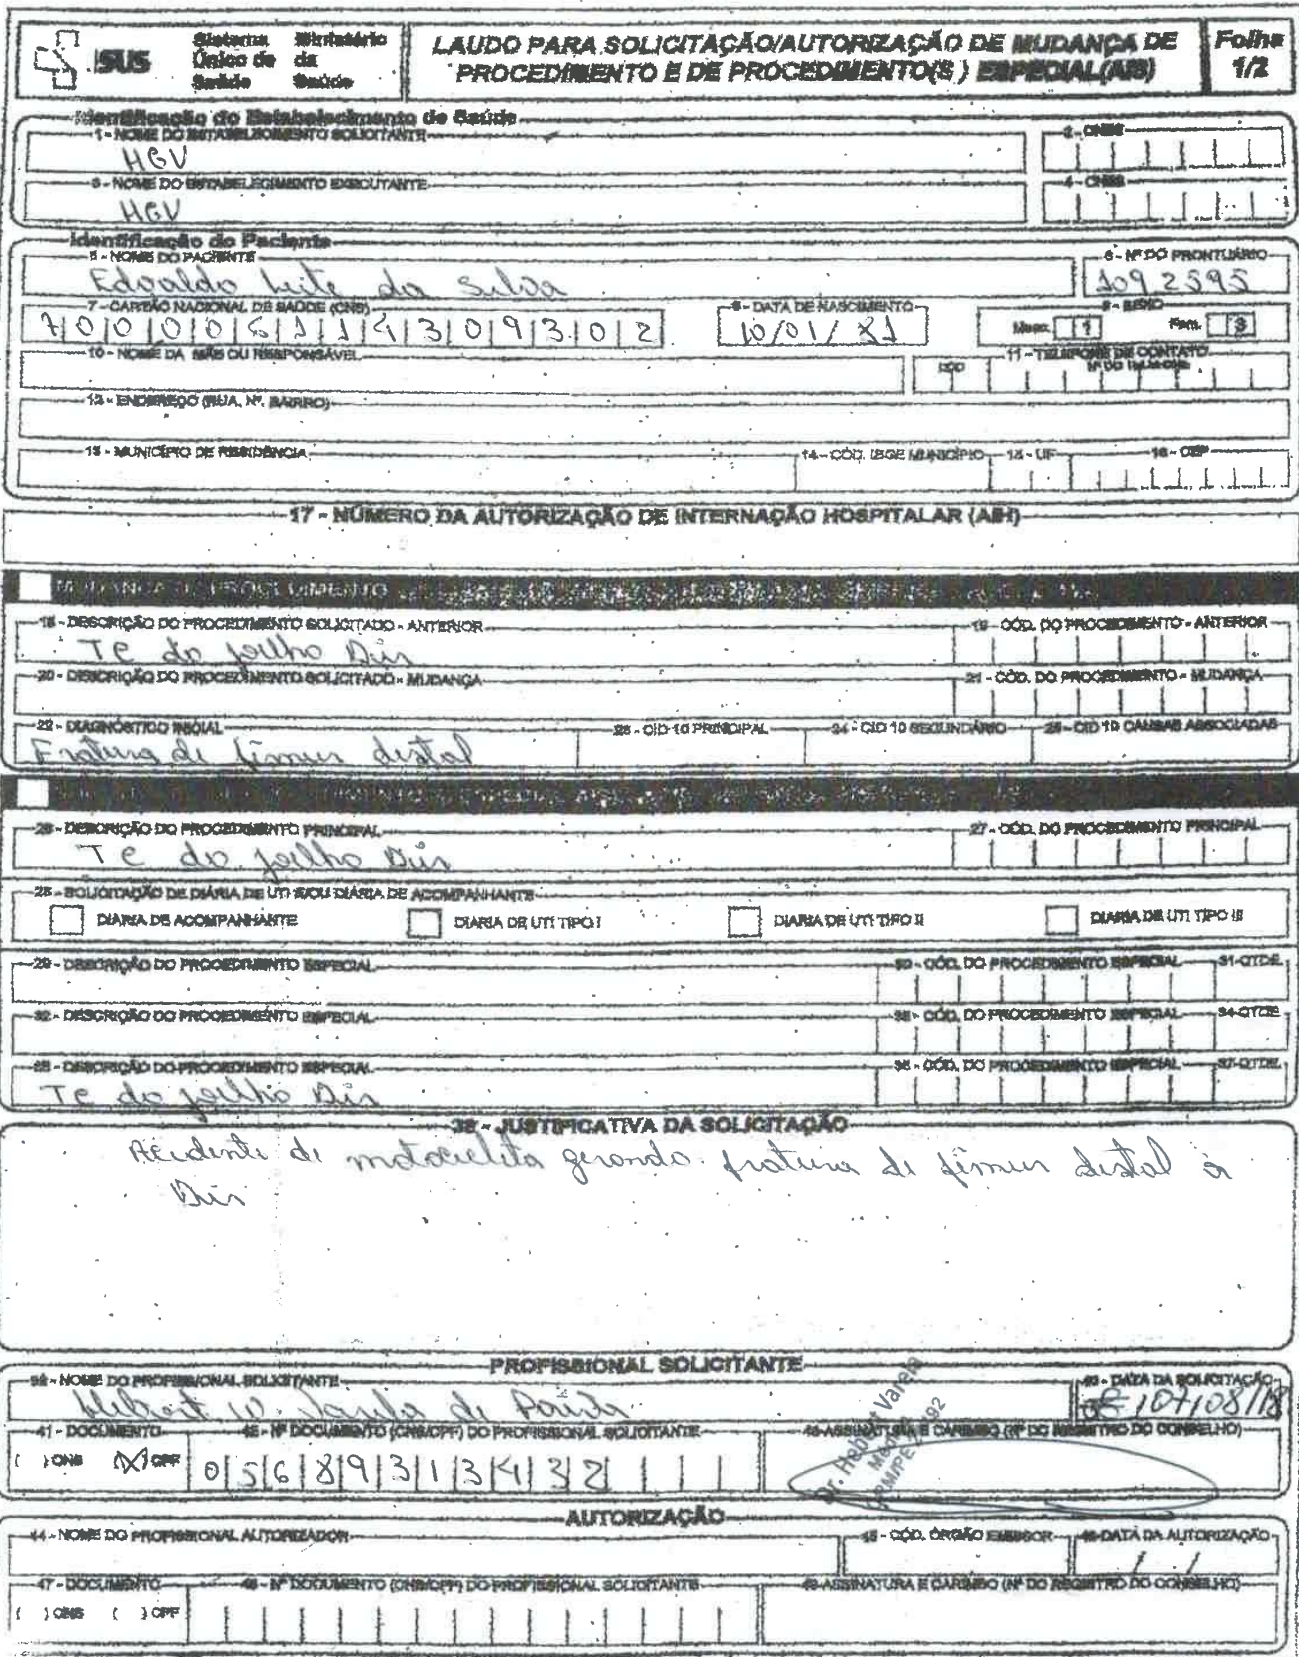 SUS
Sistema Único de Saúde
Ministério da Saúde
LAUDO PARA SOLICITAÇÃO/AUTORIZAÇÃO DE MUDANÇA DE PROCEDIMENTO E DE PROCEDIMENTO(S) ESPECIAL(AIS)
Folha 1/2
Identificação do Estabelecimento de Saúde
1 - NOME DO ESTABELECIMENTO SOLICITANTE
2 - CNES
HGV
3 - NOME DO ESTABELECIMENTO EXECUTANTE
4 - CNES
HGV
Identificação do Paciente
5 - NOME DO PACIENTE
6 - Nº DO PRONTUÁRIO
Edvaldo Leite da Silva
1092595
7 - CARTÃO NACIONAL DE SAÚDE (CNS)
8 - DATA DE NASCIMENTO
9 - SEXO
10/01/
Masc. 1 Fem. 3
10 - NOME DA MÃE OU RESPONSÁVEL
11 - TELEFONE DE CONTATO
DDD Nº DO TELEFONE
12 - ENDEREÇO (RUA, Nº, BAIRRO)
13 - MUNICÍPIO DE RESIDÊNCIA
14 - CÓD. IBGE MUNICÍPIO
15 - UF
16 - CEP
17 - NÚMERO DA AUTORIZAÇÃO DE INTERNAÇÃO HOSPITALAR (AIH)
MUDANÇA DE PROCEDIMENTO
18 - DESCRIÇÃO DO PROCEDIMENTO SOLICITADO - ANTERIOR
19 - CÓD. DO PROCEDIMENTO - ANTERIOR
TC do joelho Dir
20 - DESCRIÇÃO DO PROCEDIMENTO SOLICITADO - MUDANÇA
21 - CÓD. DO PROCEDIMENTO - MUDANÇA
22 - DIAGNÓSTICO INICIAL
23 - CID 10 PRINCIPAL
24 - CID 10 SECUNDÁRIO
25 - CID 10 CAUSAS ASSOCIADAS
Fratura de fêmur distal
26 - DESCRIÇÃO DO PROCEDIMENTO PRINCIPAL
27 - CÓD. DO PROCEDIMENTO PRINCIPAL
TC do joelho Dir
28 - SOLICITAÇÃO DE DIÁRIA DE UTI E/OU DIÁRIA DE ACOMPANHANTE
DIARIA DE ACOMPANHANTE
DIARIA DE UTI TIPO I
DIARIA DE UTI TIPO II
DIARIA DE UTI TIPO III
29 - DESCRIÇÃO DO PROCEDIMENTO ESPECIAL
30 - CÓD. DO PROCEDIMENTO ESPECIAL
31-QTDE
32 - DESCRIÇÃO DO PROCEDIMENTO ESPECIAL
33 - CÓD. DO PROCEDIMENTO ESPECIAL
34-QTDE
35 - DESCRIÇÃO DO PROCEDIMENTO ESPECIAL
36 - CÓD. DO PROCEDIMENTO ESPECIAL
37-QTDE
TC do joelho Dir
38 - JUSTIFICATIVA DA SOLICITAÇÃO
Acidente de motocicleta gerando fratura de fêmur distal à
Dir
PROFISSIONAL SOLICITANTE
39 - NOME DO PROFISSIONAL SOLICITANTE
40 - DATA DA SOLICITAÇÃO
Hebert W. Varela de Paiva
07/08/18
41 - DOCUMENTO
42 - Nº DOCUMENTO (CNS/CPF) DO PROFISSIONAL SOLICITANTE
43-ASSINATURA E CARIMBO (Nº DO REGISTRO DO CONSELHO)
( ) CNS (X) CPF
05689313432
Dr. Hebert Varela
AUTORIZAÇÃO
44 - NOME DO PROFISSIONAL AUTORIZADOR
45 - CÓD. ÓRGÃO EMISSOR
46-DATA DA AUTORIZAÇÃO
/ /
47 - DOCUMENTO
48 - Nº DOCUMENTO (CNS/CPF) DO PROFISSIONAL SOLICITANTE
49-ASSINATURA E CARIMBO (Nº DO REGISTRO DO CONSELHO)
( ) CNS ( ) CPF